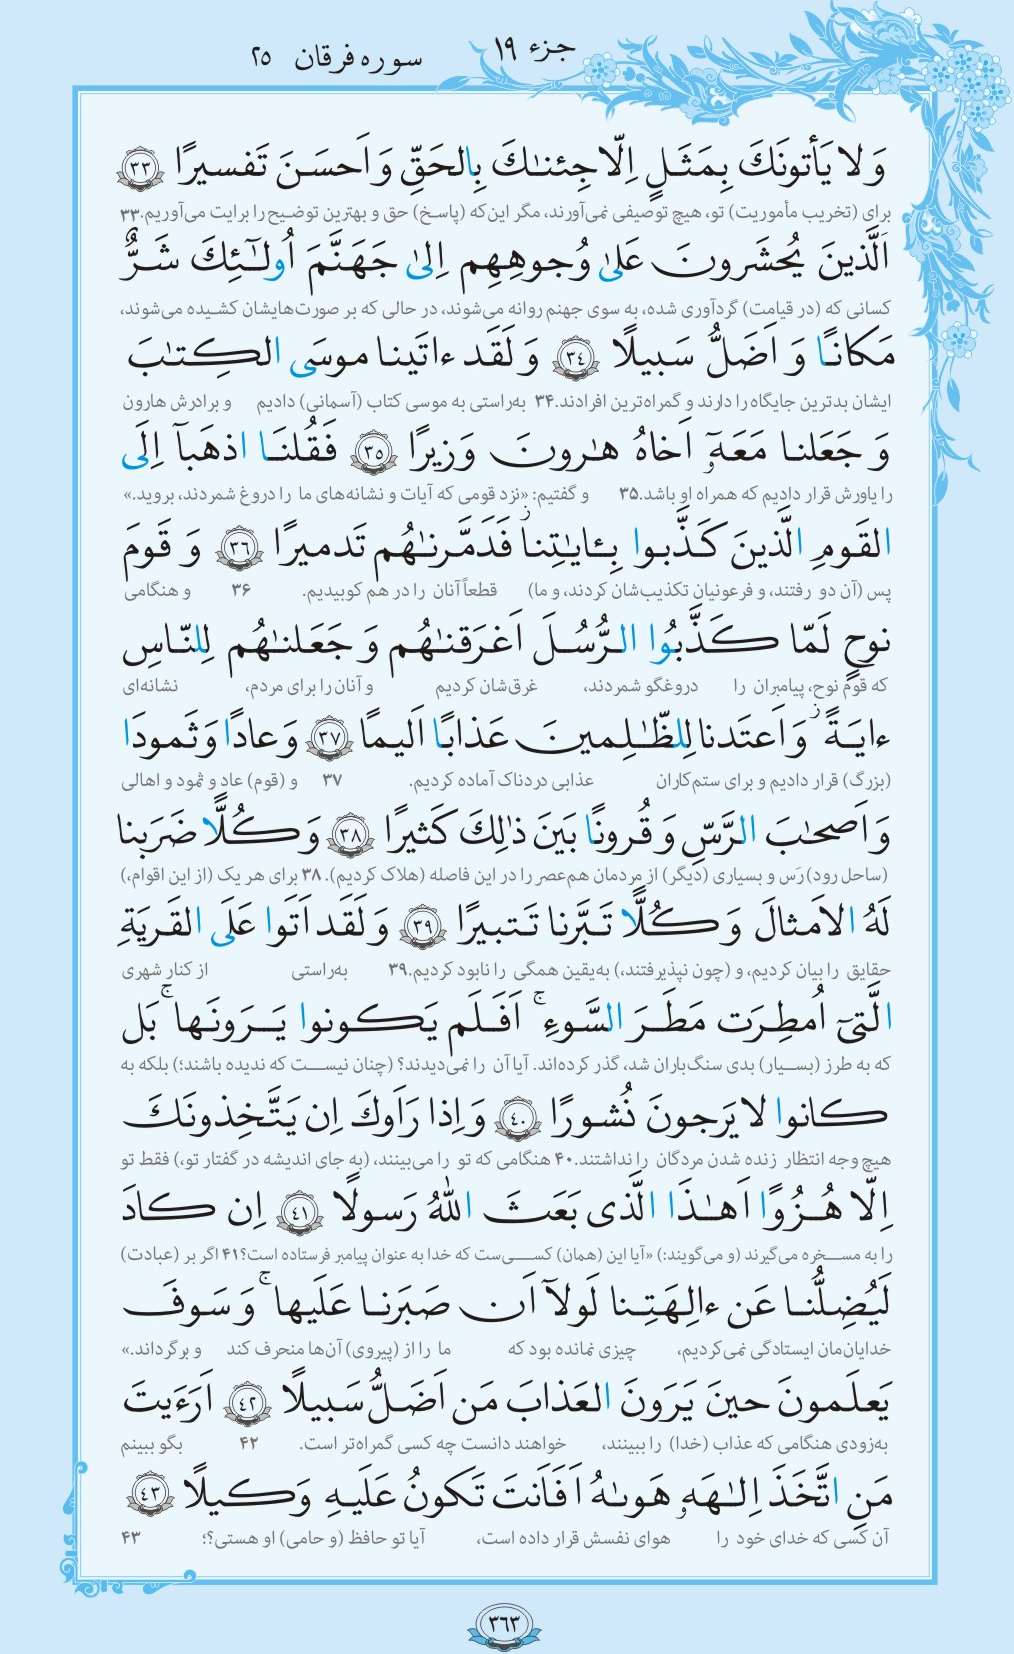 جزء ۱۹
سوره فرقان ۲۵
وَ لا یَأتونَكَ بِمَثَلٍ اِلّا جِئنـٰكَ بِالحَقِّ وَ اَحسَنَ تَفسیرًا ﴿٣٣﴾
برای (تخریب مأموریت) تو، هیچ توصیفی نمی‌آورند، مگر این‌که (پاسخ) حق و بهترین توضیح را برایت می‌آوریم.۳۳
اَلَّذینَ یُحشَرونَ عَلیٰ وُجوهِهِم اِلیٰ جَهَنَّمَ اُولـٰٓئِكَ شَرٌّ
کسانی که (در قیامت) گردآوری شده، به سوی جهنم روانه می‌شوند، در حالی که بر صورت‌هایشان کشیده می‌شوند،
مَكانًا وَ اَضَلُّ سَبیلًا ﴿٣٤﴾ وَ لَقَد ءاتَینا موسَی الكِتـٰبَ
ایشان بدترین جایگاه را دارند و گمراه‌ترین افرادند.۳۴ به‌راستی به موسی کتاب (آسمانی) دادیم و برادرش هارون
وَ جَعَلنا مَعَهٗٓ اَخاهُ هـٰرونَ وَزیرًا ﴿٣٥﴾ فَقُلنَا اذهَبآ اِلَی
را یاورش قرار دادیم که همراه او باشد.۳۵ و گفتیم: «نزد قومی که آیات و نشانه‌های ما را دروغ شمردند، بروید.»
القَومِ الَّذینَ كَذَّبوا بِـٔایـٰتِنا ز فَدَمَّرنـٰهُم تَدمیرًا ﴿٣٦﴾ وَ قَومَ
پس (آن دو رفتند، و فرعونیان تکذیب‌شان کردند، و ما) قطعاً آنان را در هم کوبیدیم. ۳۶ و هنگامی
نوحٍ لَمّا كَذَّبُوا الرُّسُلَ اَغرَقنـٰهُم وَ جَعَلنـٰهُم لِلنّاسِ
که قوم نوح، پیامبران را دروغگو شمردند، غرق‌شان کردیم و آنان را برای مردم، نشانه‌ای
ءایَةً ز وَ اَعتَدنا لِلظّـٰلِمینَ عَذابًا اَلیمًا ﴿٣٧﴾ وَ عادًا وَ ثَمودَا
(بزرگ) قرار دادیم و برای ستم‌کاران عذابی دردناک آماده کردیم. ۳۷ و (قوم) عاد و ثمود و اهالی
وَ اَصحـٰبَ الرَّسِّ وَ قُرونًا بَینَ ذٰلِكَ كَثیرًا ﴿٣٨﴾ وَ كُلًّا ضَرَبنا
(ساحل رود) رَس و بسیاری (دیگر) از مردمان هم‌عصر را در این فاصله (هلاک کردیم). ۳۸ برای هر یک (از این اقوام،)
لَهُ الاَمثالَ وَ كُلًّا تَبَّرنا تَتبیرًا ﴿٣٩﴾ وَ لَقَد اَتَوا عَلَی القَریَةِ
حقایق را بیان کردیم، و (چون نپذیرفتند،) به‌یقین همگی را نابود کردیم.۳۹ به‌راستی از کنار شهری
الَّتیٓ اُمطِرَت مَطَرَ السَّوءِ ۚ اَفَلَم یَكونوا یَرَونَها ۚ بَل
که به طرز (بسیار) بدی سنگ‌باران شد، گذر کرده‌اند. آیا آن را نمی‌دیدند؟ (چنان نیست که ندیده باشند؛) بلکه به
كانوا لا یَرجونَ نُشورًا ﴿٤٠﴾ وَ اِذا رَاَوكَ اِن یَتَّخِذونَكَ
هیچ وجه انتظار زنده شدن مردگان را نداشتند.۴۰ هنگامی که تو را می‌بینند، (به جای اندیشه در گفتار تو،) فقط تو
اِلّا هُزُوًا اَهـٰذَا الَّذی بَعَثَ اللّٰهُ رَسولًا ﴿٤١﴾ اِن كادَ
را به مسخره می‌گیرند (و می‌گویند:) «آیا این (همان) کسی‌ست که خدا به عنوان پیامبر فرستاده است؟۴۱ اگر بر (عبادت)
لَیُضِلُّنا عَن ءالِهَتِنا لَولآ اَن صَبَرنا عَلَیها ۚ وَ سَوفَ
خدایان‌مان ایستادگی نمی‌کردیم، چیزی نمانده بود که ما را از (پیروی) آن‌ها منحرف کند و برگرداند.»
یَعلَمونَ حینَ یَرَونَ العَذابَ مَن اَضَلُّ سَبیلًا ﴿٤٢﴾ اَرَءَیتَ
به‌زودی هنگامی که عذاب (خدا) را ببینند، خواهند دانست چه کسی گمراه‌تر است. ۴۲ بگو ببینم
مَنِ اتَّخَذَ اِلـٰهَهٗ هَوىٰهُ اَفَاَنتَ تَكونُ عَلَیهِ وَكیلًا ﴿٤٣﴾
آن کسی که خدای خود را هوای نفسش قرار داده است، آیا تو حافظ (و حامی) او هستی؟! ۴۳
۳۶۳